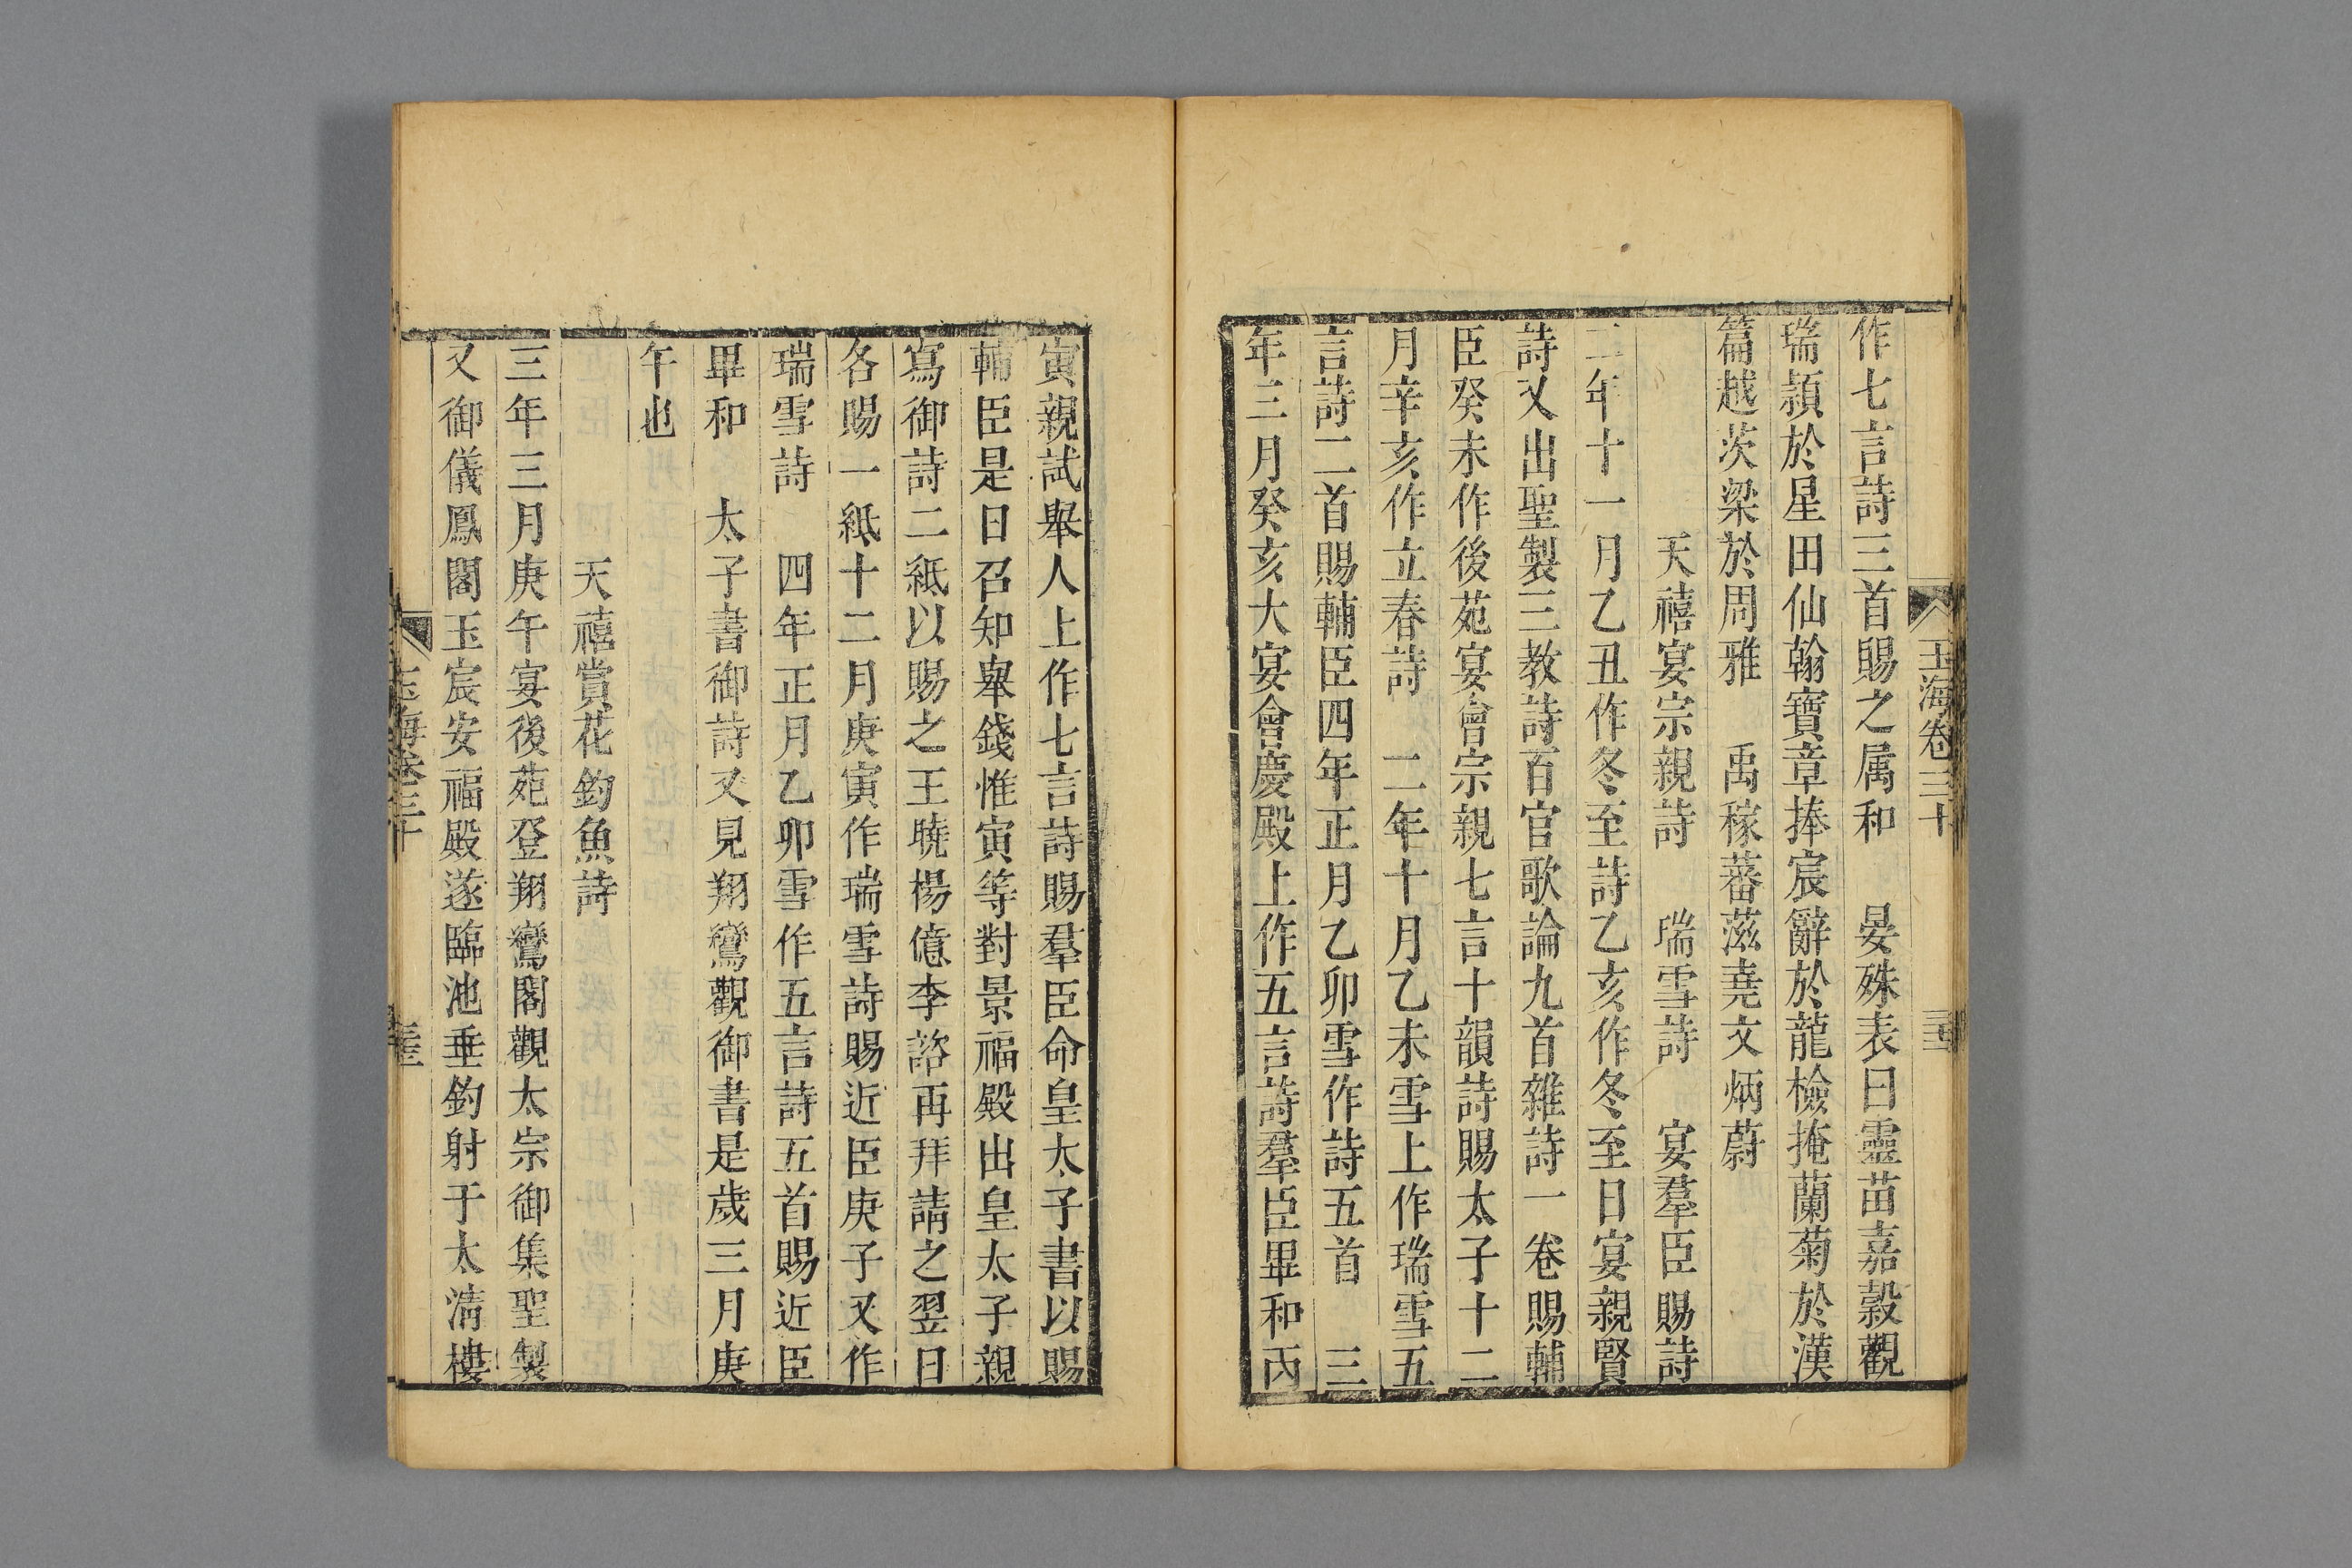 玉海卷三十
作七言詩三首賜之属和　晏殊表曰靈苗嘉穀觀
瑞頴於星田仙翰寶章捧宸辭於龍檢掩蘭菊於漢
篇越茨梁於周雅　禹稼蕃滋堯文炳蔚
天禧宴宗親詩　瑞雪詩　宴羣臣賜詩
二年十一月乙丑作冬至詩乙亥作冬至日宴親賢
詩又出聖製三教詩百官歌論九首雜詩一卷賜輔
臣癸未作後苑宴會宗親七言十韻詩賜太子十二
月辛亥作立春詩　二年十月乙未雪上作瑞雪五
言詩二首賜輔臣四年正月乙卯雪作詩五首　三
年三月癸亥大宴會慶殿上作五言詩羣臣畢和丙
寅親試舉人上作七言詩賜羣臣命皇太子書以賜
輔臣是日召知舉錢惟寅等對景福殿出皇太子親
寫御詩二紙以賜之王曉楊億李諮再拜請之翌日
各賜一紙十二月庚寅作瑞雪詩賜近臣庚子又作
瑞雪詩　四年正月乙卯雪作五言詩五首賜近臣
畢和　太子書御詩又見翔鸞觀御書是歲三月庚
午也
天禧賞花釣魚詩
三年三月庚午宴後苑登翔鸞閣觀太宗御集聖製
又御儀鳳閣玉宸安福殿遂臨池垂釣射于太清樓
玉海卷三十